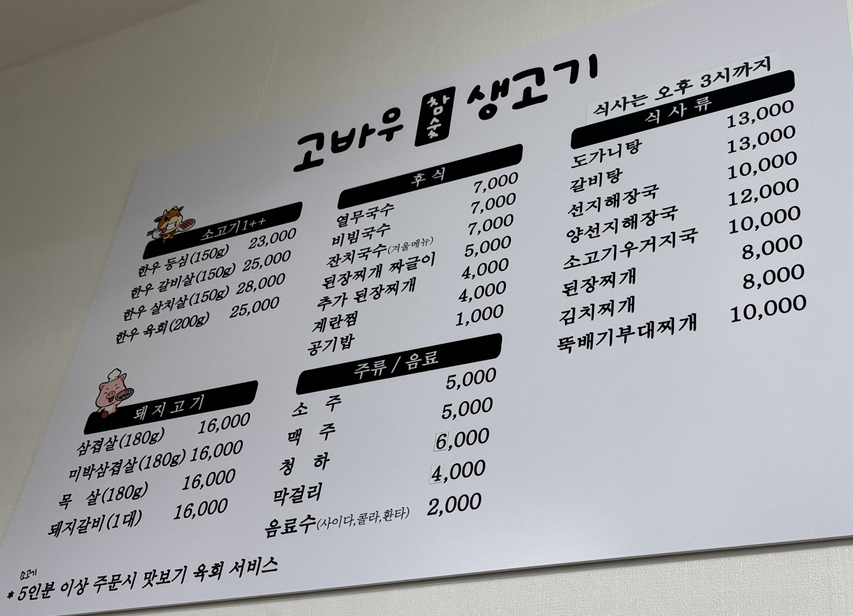 고바우 참숯 생고기
소고기1++
한우 등심(150g) 23,000
한우 갈비살(150g) 25,000
한우 살치살(150g) 28,000
한우 육회(200g) 25,000
돼지고기
삼겹살(180g) 16,000
미박삼겹살(180g) 16,000
목 살(180g) 16,000
돼지갈비(1대) 16,000
후식
열무국수 7,000
비빔국수 7,000
잔치국수(겨울메뉴) 7,000
된장찌개 짜글이 5,000
추가 된장찌개 4,000
계란찜 4,000
공기밥 1,000
주류 / 음료
소 주 5,000
맥 주 5,000
청 하 6,000
막걸리 4,000
음료수(사이다,콜라,환타) 2,000
식사는 오후 3시까지
식사류
도가니탕 13,000
갈비탕 13,000
선지해장국 10,000
양선지해장국 12,000
소고기우거지국 10,000
된장찌개 8,000
김치찌개 8,000
뚝배기부대찌개 10,000
소고기
* 5인분 이상 주문시 맛보기 육회 서비스